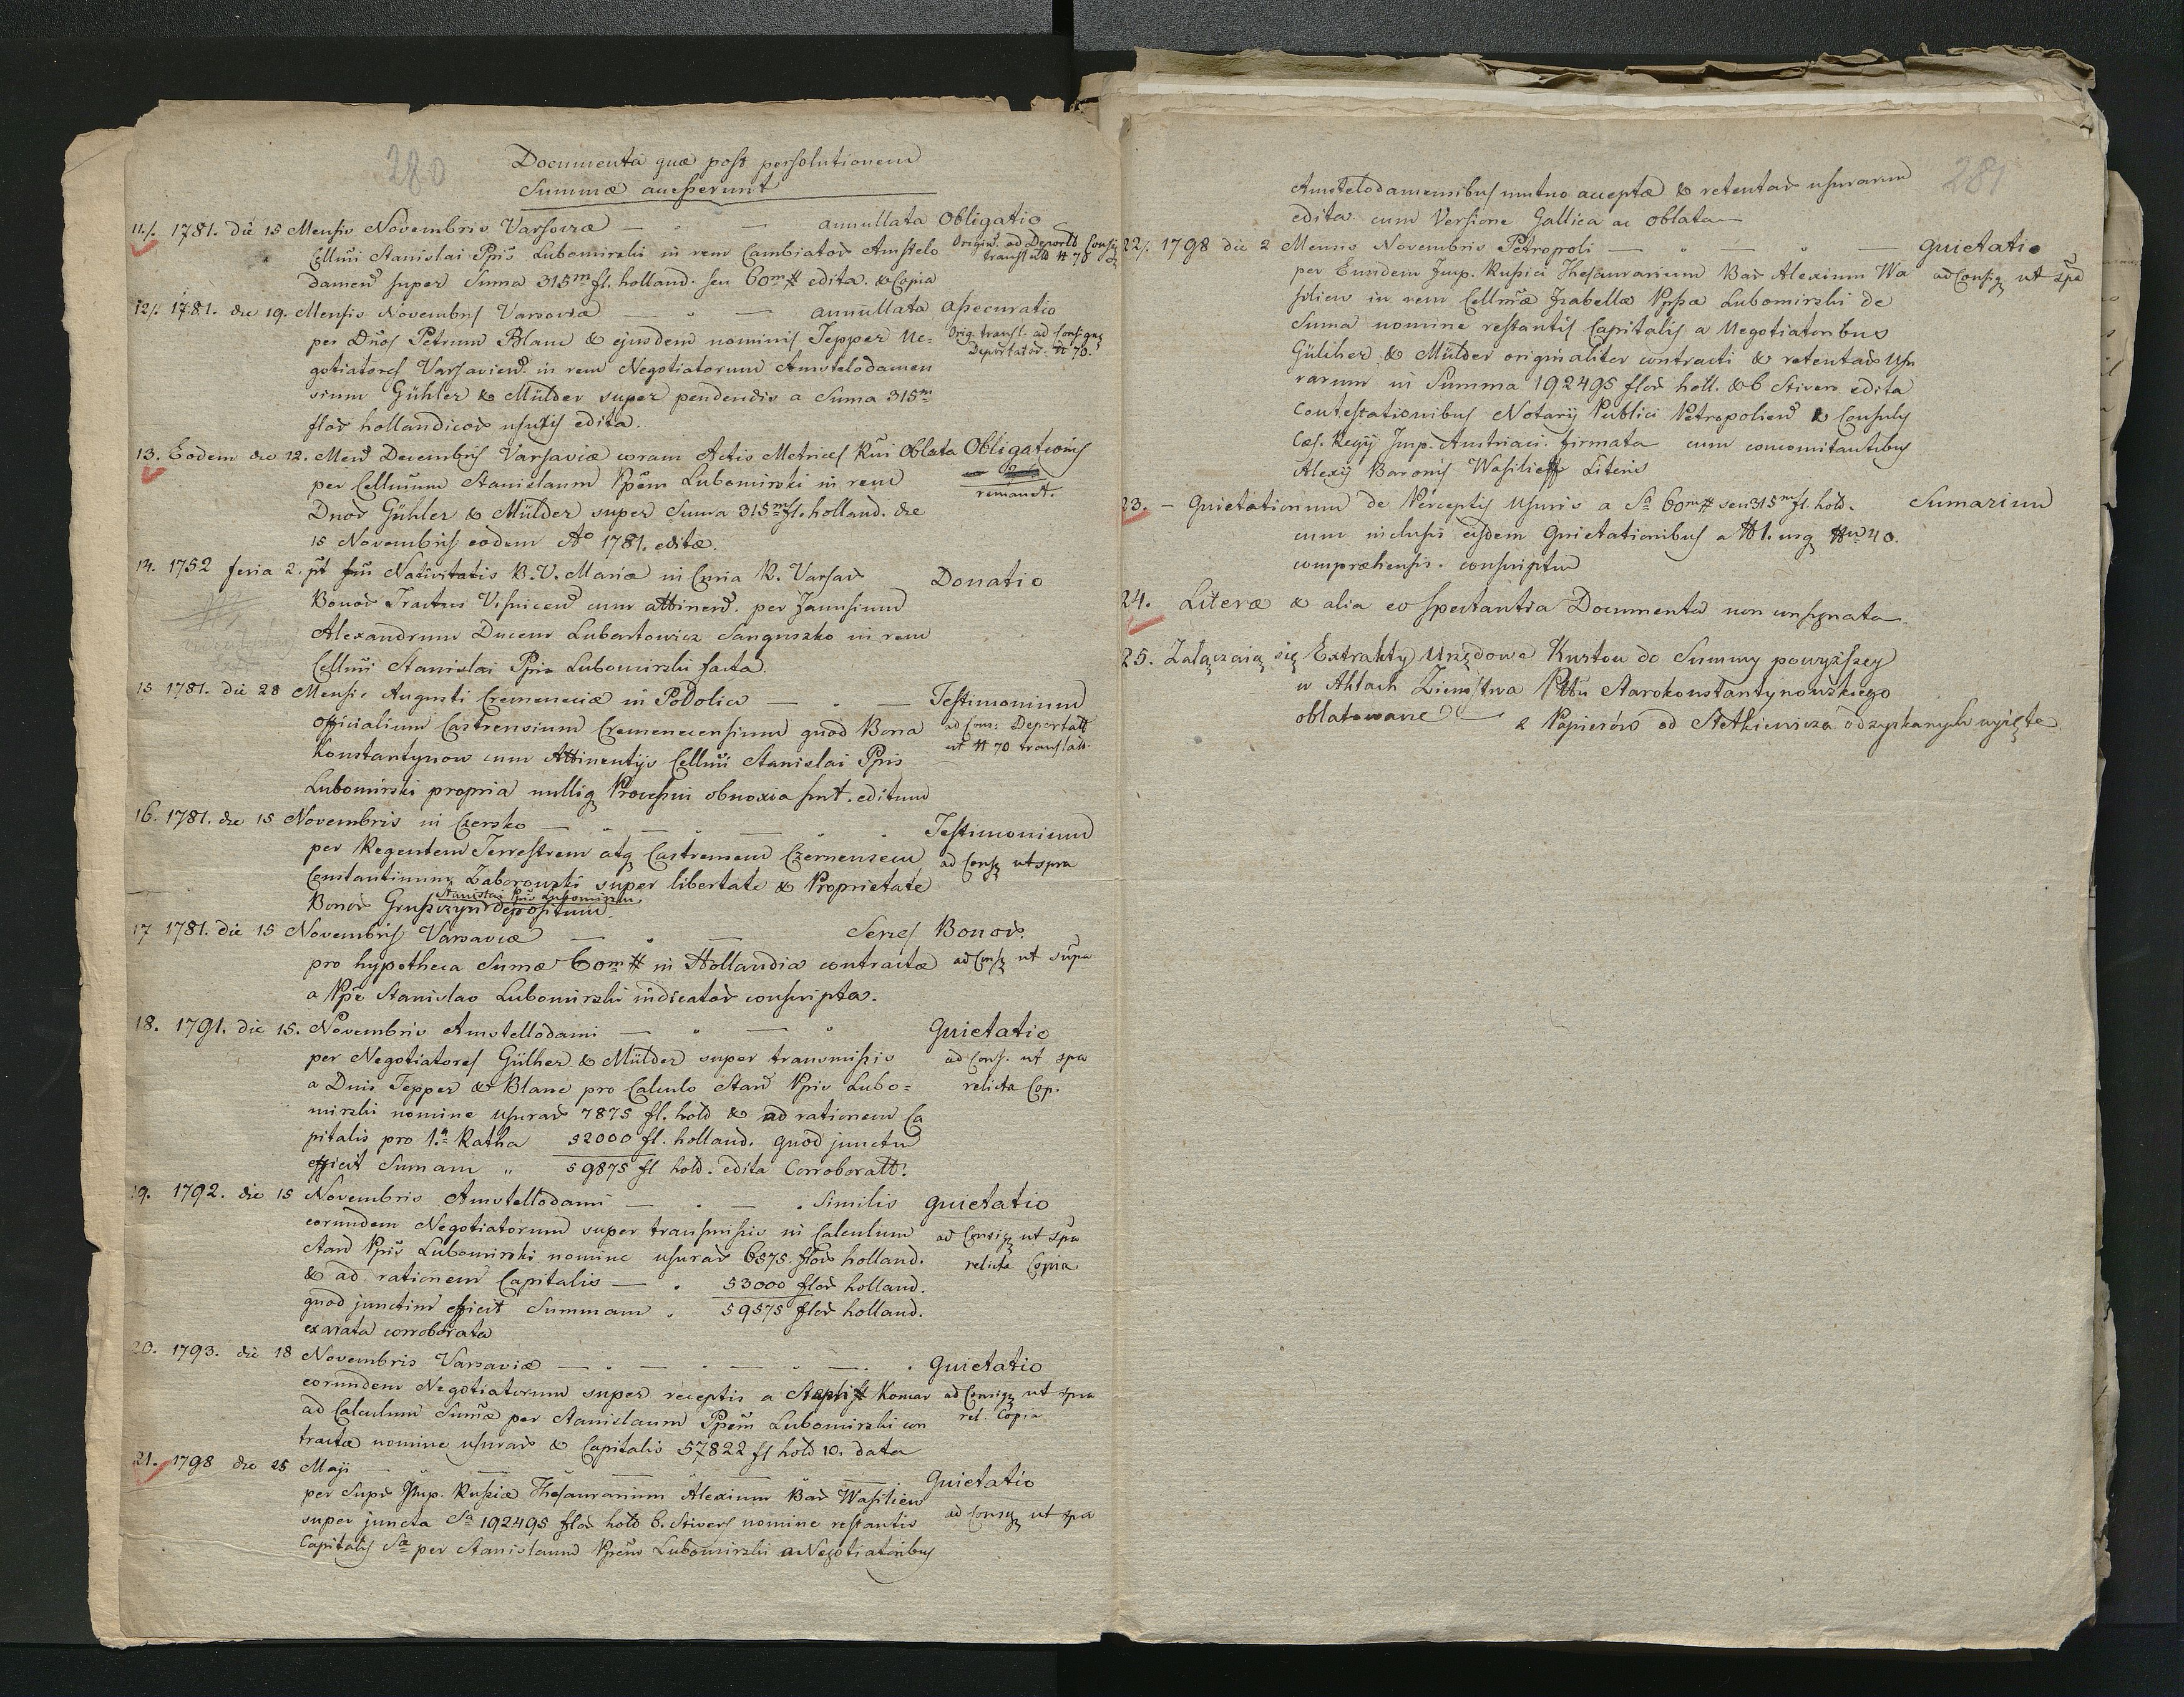 280
Documenta quæ post persolutionem
Summæ accesserunt
11/. 1781. die 15 Mensis Novembris Varsoviæ — " — annullata Obligatio
Cellmi Stanislai Ppis Lubomirski in rem Cambiator Amstelo
Origin. ad Deportt. Consig
translatt # 70
damen super Suma 315m fl. holland. seu 60m # edita. & Copia
12/. 1781. die 19. Mensis Novembris Varsoviæ — " — annullata assecuratio
per Dnos Petrum Blanc & ejusdem nominis Tepper Ne=
Orig. transl. ad Consigaz
Deportator. # 70.
gotiatores Varsavien. in rem Negotiatorum Amstelodamen
sium Gühler & Mülder super pendendis a Suma 315m
flor hollandicor usuris edita.
13. Eodem die 12. Mens Decembris Varsaviæ coram Actis Metrices Rni Oblata Obligationis
per Cellmum Stanislaum Ppem Lubomirski in rem
remanet.
Dnor Gühler & Mülder super Suma 315m fl. holland. die
15 Novembris eodem Ao 1781. editæ.
14. 1752 feria 2. pt Nativitatis B. V. Mariæ in Curia R. Varsav Donatio
Bonor Tractus Visnicens cum attinen. per Janusium
Alexandrum Ducem Lubartowicz Sanguszko in rem
Cellmi Stanislai Ppis Lubomirski facta
15 1781. die 28 Mensis Augusti Cremeneciæ in Podolia — . — Testimonium
Officialium Castrensium Cremenecensium quod Bona
ad Cons: Deportatt
ut # 70 translatt.
Konstantynow cum Attinentijs Cellmi Stanislai Ppis
Lubomirski propria nulliq Processui obnoxia sint. editum
16. 1781. die 15 Novembris in Czersko — " — " — " . Testimonium
per Regentem Terrestrem atq Castrensem Czernensem
ad Consz ut spra
Constantinum Zaborowski super libertate & Proprietate
Stanislai Ppis Lubomirski
Bonor Gruszczyn depositum.
17 1781. die 15 Novembris Varsaviæ — " — Series Bonor.
pro hypotheca Sumæ 60m # in Hollandia contractæ ad Consz ut supa
a Ppe Stanislao Lubomirski indicator conscripta.
18. 1791. die 15. Novembris Amstellodami — " — " Quietatio
per Negotiatores Gülher & Mülder super transmissis
ad Cons. ut spa
a Dnis Tepper & Blanc pro Calculo Stan Ppis Lubo=
relicta Cop.
mirski nomine usurar 7875 fl. hold & ad rationem Ca
pitalis pro 1.a Ratha 52000 fl. holland. quod junctim
efficit Sumam " 59875 fl hold. edita Corroboratt.
19. 1792. die 15 Novembris Amstellodami — . — . Similis Quietatio
eorundem Negotiatorum super transmissis in Calculum
ad Consigz ut spa
Stan Ppis Lubomirski nomine usurar 6575. flor holland.
relicta Copia
& ad rationem Capitalis — . 53000 flor holland.
quod junctim efficit Summam . 59575 flor holland.
exarata corroborata
20. 1793. die 18 Novembris Varsaviæ — . — . — . — . . Quietatio
eorundem Negotiatorum super receptis a Komar
ad Consigz ut spra
rel. Copia
ad Calculum Sumæ per Stanislaum Ppem Lubomirski con
tractæ nomine usurar & Capitalis 57822 fl hold 10. data
21. 1798 die 25 Maji — Quietatio
per Supr Imp. Russiæ Thesaurarium Alexium Bar Wasiliew
super juncta Sa 192495 flor hold 6. Stivers nomine restantis
ad Consgz ut spa
Capitalis Sæ per Stanislaum Ppem Lubomirski a Negotiatoribus
281
Amstelodamensibus mutuo acceptæ & retentar usurarum
edita cum Versione Gallica ac Oblata
22/. 1798 die 2 Mensis Novembris Petropoli — " — " — Quietatio
per Eundem Imp. Russici Thesaurarium Bar Alexium Wa
ad Consigz ut spa
siliew in rem Cellmæ Izabellæ Ppssa Lubomirski de
Suma nomine restantis Capitalis a Negotiatoribus
Gülcher & Mülder originaliter contracti & retentar Usu
rarum in Summa 192495 flor holl. & 6 Stivers edita
Contestationibus Notarij Publici Petropoliens & Consulis
Cæs. Regij Imp. Austriaci firmata cum concomitantibus
Alexij Baronis Wasilieff Literis
23. — Quietationum de Perceptis Usuris a Sa 60m # seu 315m fl. hold. Sumarium
cum inclusis eisdem Quietationibus a # 1. usq # 40.
compræhensis. conscriptum
24. Literæ & alia eo spectantia Documenta non consignata
25. Załączaią się Extrakty Urzędowe Kwitow do Summy powyższey
w Aktach Ziemstwa Pttu Starokonstantynowskiego
oblatowane — z Papierów od Stetkiewicza odzyskanych wyięte